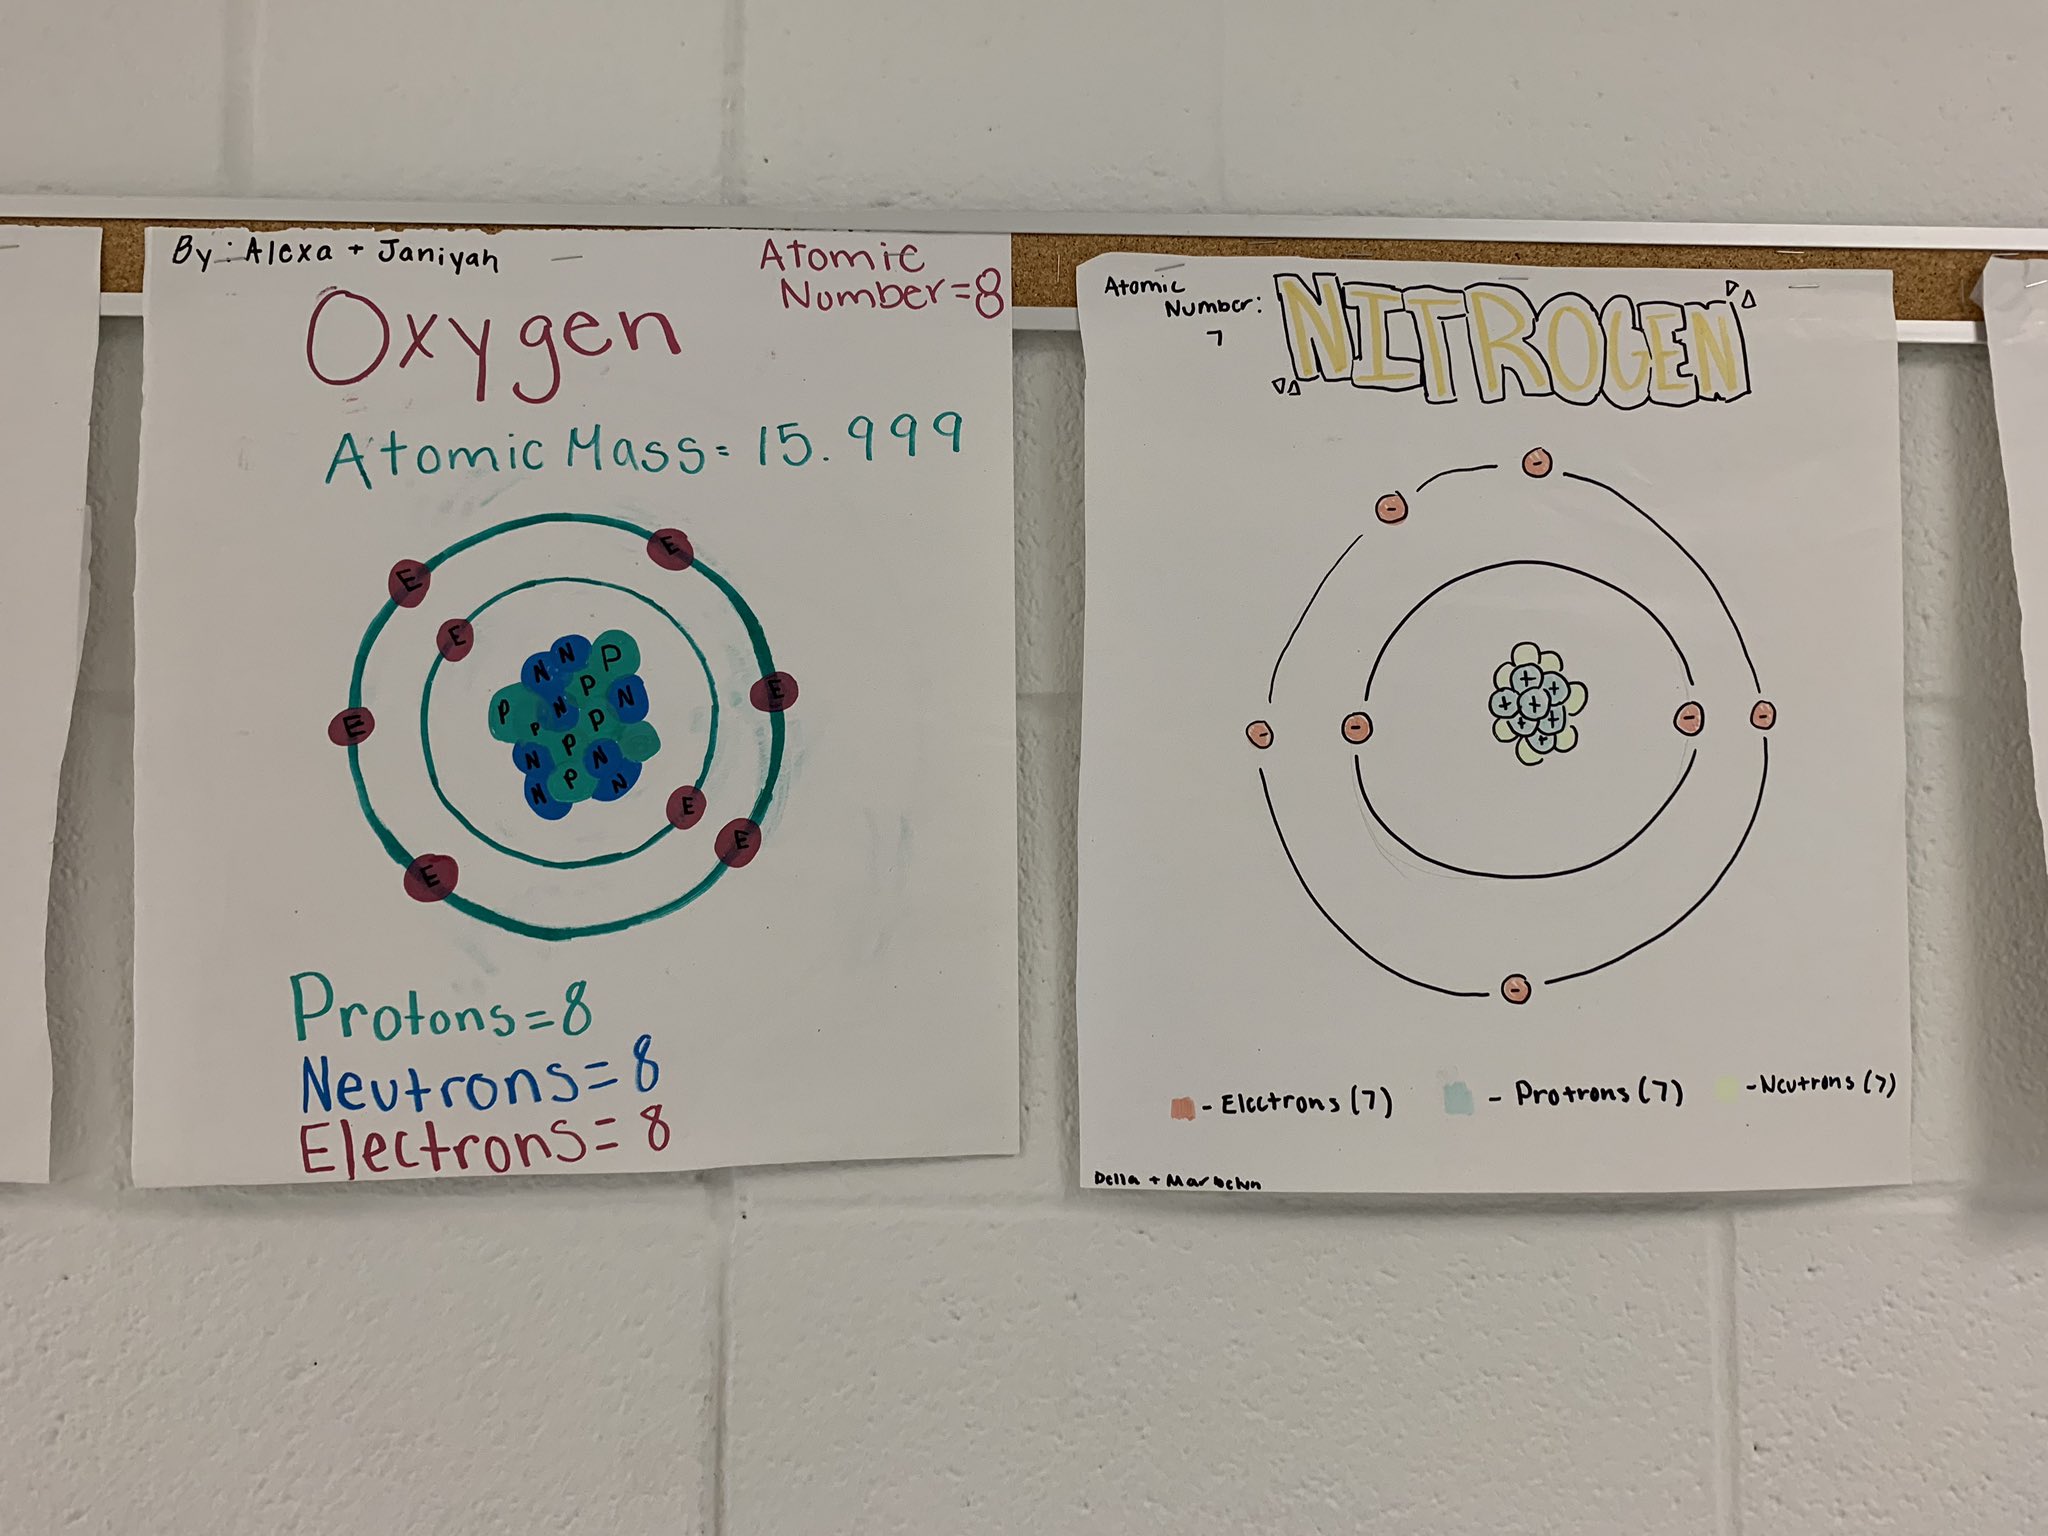 By: Alexa + Janiyah
Atomic
Number=8
Oxygen
Atomic Mass= 15.999
E
E
E
N
N
P
P
N
E
P
N
P
P
E
P
N
N
N
P
N
E
E
E
Protons=8
Neutrons=8
Electrons=8
Atomic
Number:
7
NITROGEN
-
-
+
+
+
+
-
-
+
+
-
-
+
-
- Electrons (7)
- Protrons (7)
- Neutrons (7)
Della +